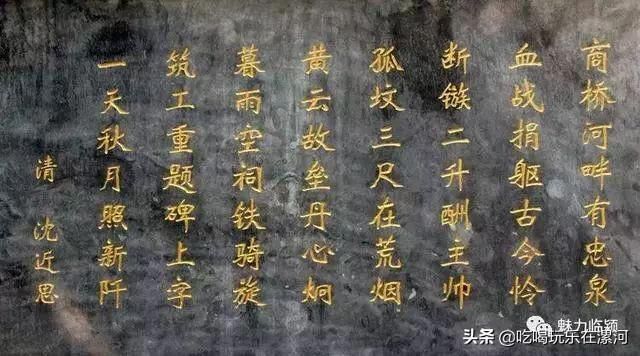 商桥河畔有忠泉
血战捐躯古今怜
断镞二升酬主帅
孤坟三尺在荒烟
黄云故垒丹心炯
暮雨空祠铁骑旋
筑工重题碑上字
一天秋月照新阡
清 沈近思
魅力临颍
头条 @吃喝玩乐在漯河